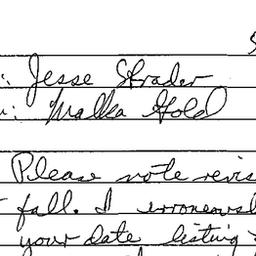 : Jesse Strader
: Malka Gold
Please note revis
fall. I erroneousl
your date listing